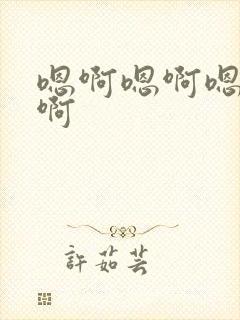 嗯啊嗯啊嗯
啊
許茹芸